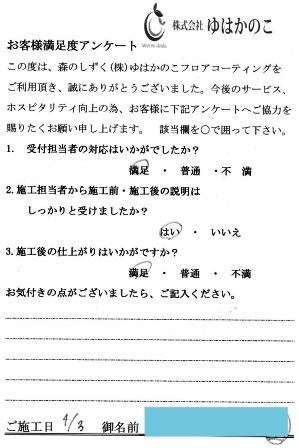 株式会社 ゆはかのこ
お客様満足度アンケート
この度は、森のしずく(株)ゆはかのこフロアコーティングを
ご利用頂き、誠にありがとうございました。今後のサービス、
ホスピタリティ向上の為、お客様に下記アンケートへご協力を
賜りたくお願い申し上げます。 該当欄を○で囲って下さい。
1. 受付担当者の対応はいかがでしたか?
満足 ・ 普通 ・不 満
2.施工担当者から施工前・施工後の説明は
しっかりと受けましたか?
はい ・ いいえ
3.施工後の仕上がりはいかがですか?
満足 ・ 普通 ・ 不満
お気付きの点がございましたら、ご記入ください。
ご施工日 4/3 御名前